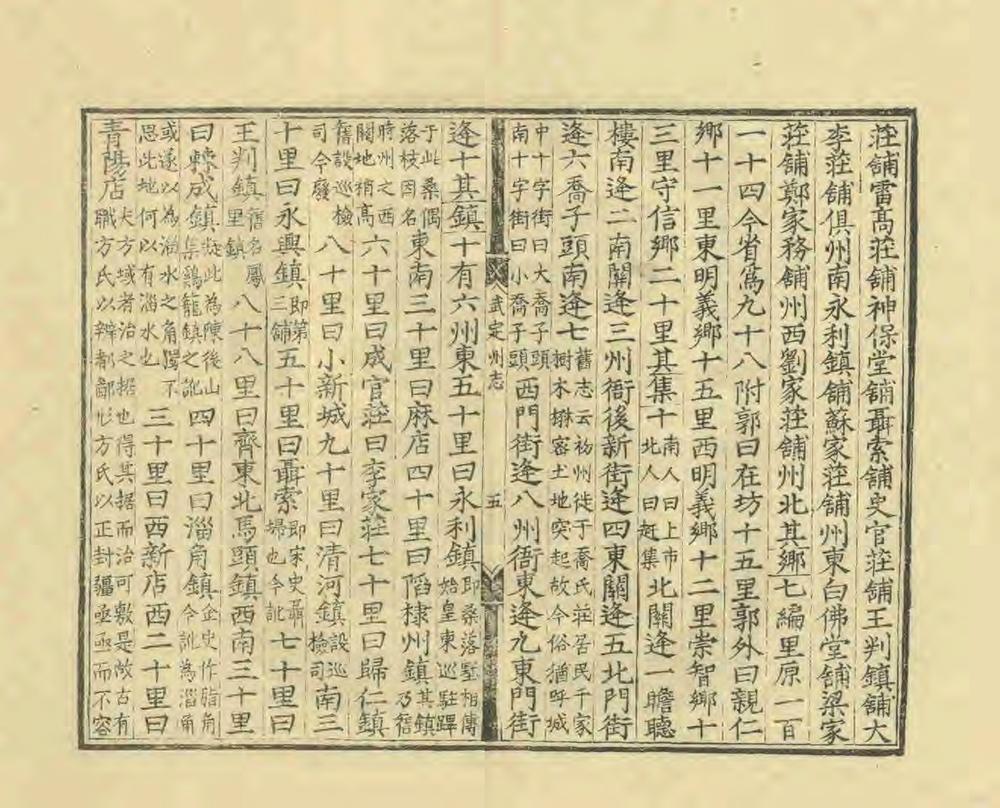 莊舖雷高莊舖神保堂舖聶索舖史官莊舖王判鎮舖大
李莊舖俱州南永利鎮舖蘇家莊舖州東白佛堂舖梁家
莊舖鄭家務舖州西劉家莊舖州北其鄉七編里原一百
一十四今省爲九十八附郭曰在坊十五里郭外曰親仁
鄉十一里東明義鄉十五里西明義鄉十二里崇智鄉十
三里守信鄉二十里其集十南人曰上市北人曰趕集北關逢一瞻聽
樓南逢二南關逢三州衙後新街逢四東關逢五北門街
逢六喬子頭南逢七舊志云初州徙于喬氏莊居民千家樹木土地突起故今俗猶呼城
中十字街曰大喬子頭南十字街曰小喬子頭西門街逢八州衙東逢九東門街
武定州志 五
逢十其鎮十有六州東五十里曰永利鎮即桑落墅相傳始皇東巡駐蹕
于此桑偶落枝因名東南三十里曰麻店四十里曰陷棣州鎮其鎮乃舊
時州之西關地稍高六十里曰成官莊曰李家莊七十里曰歸仁鎮
舊設巡檢司今廢八十里曰小新城九十里曰清河鎮設巡檢司南三
十里曰永興鎮即第三舖五十里曰聶索即宋史聶婦也今訛七十里曰
王判鎮舊名屬里鎮八十八里曰齊東北馬頭鎮西南三十里
曰棘成鎮疑此為陳後山集鷄籠鎮之訛四十里曰淄角鎮金史作脂角今訛為淄角
或遂以為淄水之角獨不思此地何以有淄水也三十里曰西新店西二十里曰
青陽店夫方域者治之据也得其据而治可敷是故古有職方氏以辨都鄙形方氏以正封疆亟亟而不容